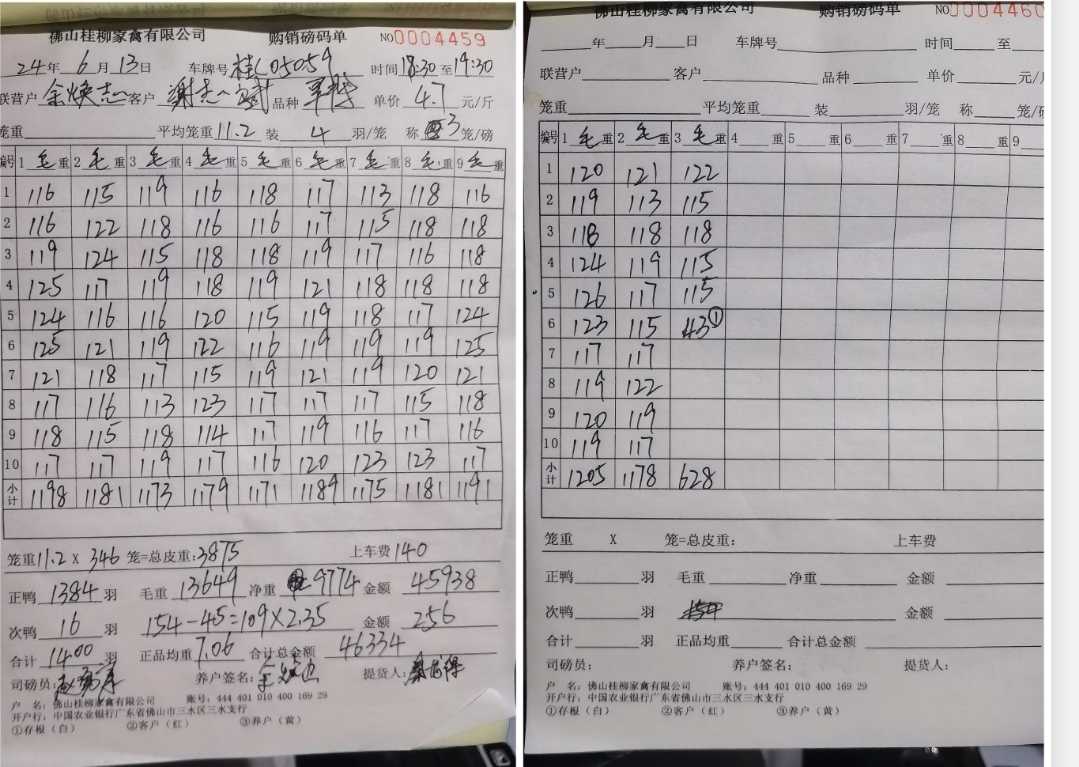 佛山桂柳家禽有限公司 购销磅码单 NO0004459
24年 6月 13日 车牌号 桂L05059 时间 18:30 至 19:30
联营户 余焕志 客户 谢志 品种 单价 4.7 元/斤
笼重 平均笼重 11.2 装 4 羽/笼 称 3 笼/磅
编号 1 毛重 2 毛重 3 毛重 4 毛重 5 毛重 6 毛重 7 毛重 8 毛重 9 毛重
1 116 115 119 116 118 117 113 118 116
2 116 122 118 116 116 117 115 118 118
3 119 124 115 118 118 119 117 116 118
4 125 117 119 118 119 121 118 118 118
5 124 116 116 120 115 119 118 117 124
6 125 121 119 122 116 119 119 119 125
7 121 118 117 115 119 121 119 120 121
8 117 116 113 123 117 117 117 115 118
9 118 115 118 114 117 119 116 117 116
10 117 117 119 117 116 120 123 123 117
小计 1198 1181 1173 1179 1171 1189 1175 1181 1191
笼重 11.2 X 346 笼=总皮重: 3875 上车费 140
正鸭 1384 羽 毛重 13649 净重 9774 金额 45938
次鸭 16 羽 154-45=109×2.35 金额 256
合计 1400 羽 正品均重 7.06 合计总金额 46334
司磅员: 养户签名: 提货人:
户 名: 佛山桂柳家禽有限公司 账号: 444 401 010 400 169 29
开户行: 中国农业银行广东省佛山市三水区三水支行
①存根(白) ②客户(红) ③养户(黄)
佛山桂柳家禽有限公司 购销磅码单 NO0004460
年 月 日 车牌号 时间 至
联营户 客户 品种 单价 元/
笼重 平均笼重 装 羽/笼 称 笼/
编号 1 毛重 2 毛重 3 毛重 4 重 5 重 6 重 7 重 8 重 9
1 120 121 122
2 119 113 115
3 118 118 118
4 124 119 115
5 126 117 115
6 123 115 43①
7 117 117
8 119 122
9 120 119
10 119 117
小计 1205 1178 628
笼重 X 笼=总皮重: 上车费
正鸭 羽 毛重 净重 金额
次鸭 羽 金额
合计 羽 正品均重 合计总金额
司磅员: 养户签名: 提货人:
户 名: 佛山桂柳家禽有限公司 账号: 444 401 010 400 169 29
开户行: 中国农业银行广东省佛山市三水区三水支行
①存根(白) ②客户(红) ③养户(黄)